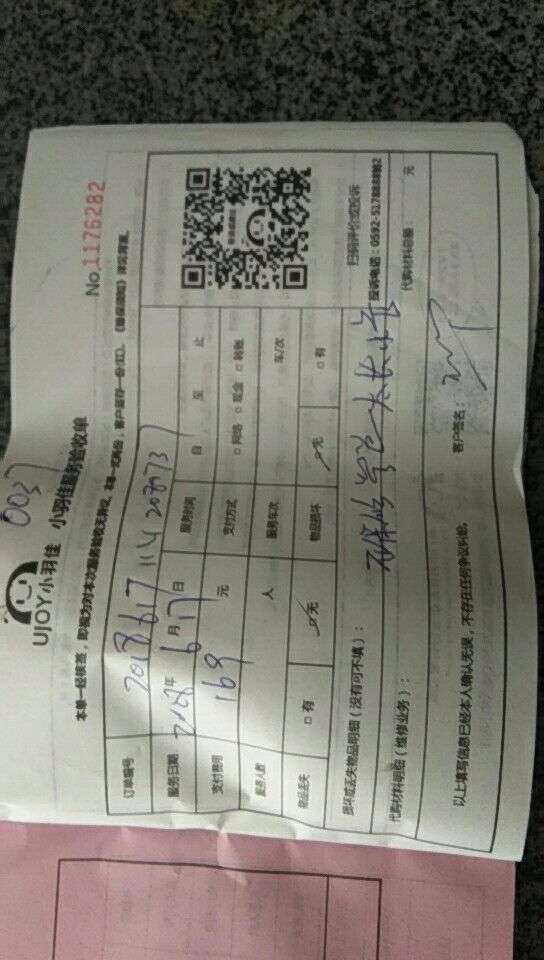 0037
UJOY小羽佳 小羽佳服务验收单
No.1176282
本单一经核签，即视为对本次服务验收无异议。本单一式两份，客户留存一份(红)。《维保须知》详见背面。
订单编号
服务日期 2018年 6月17日 服务时间 自 至 止
支付费用 169 元 支付方式 □ 网络 □ 现金 □ 转账
服务人数 人 服务车次 车/次
物品丢失 □ 有 无 物品损坏 无 □ 有
扫码评价或投诉
损坏或丢失物品明细（没有可不填）：
投诉电话：0592-5178888转2
代购材料明细（维修业务）：
代购材料总额： 元
以上填写信息已经本人确认无误，不存在任何争议纠纷。
客户签名：